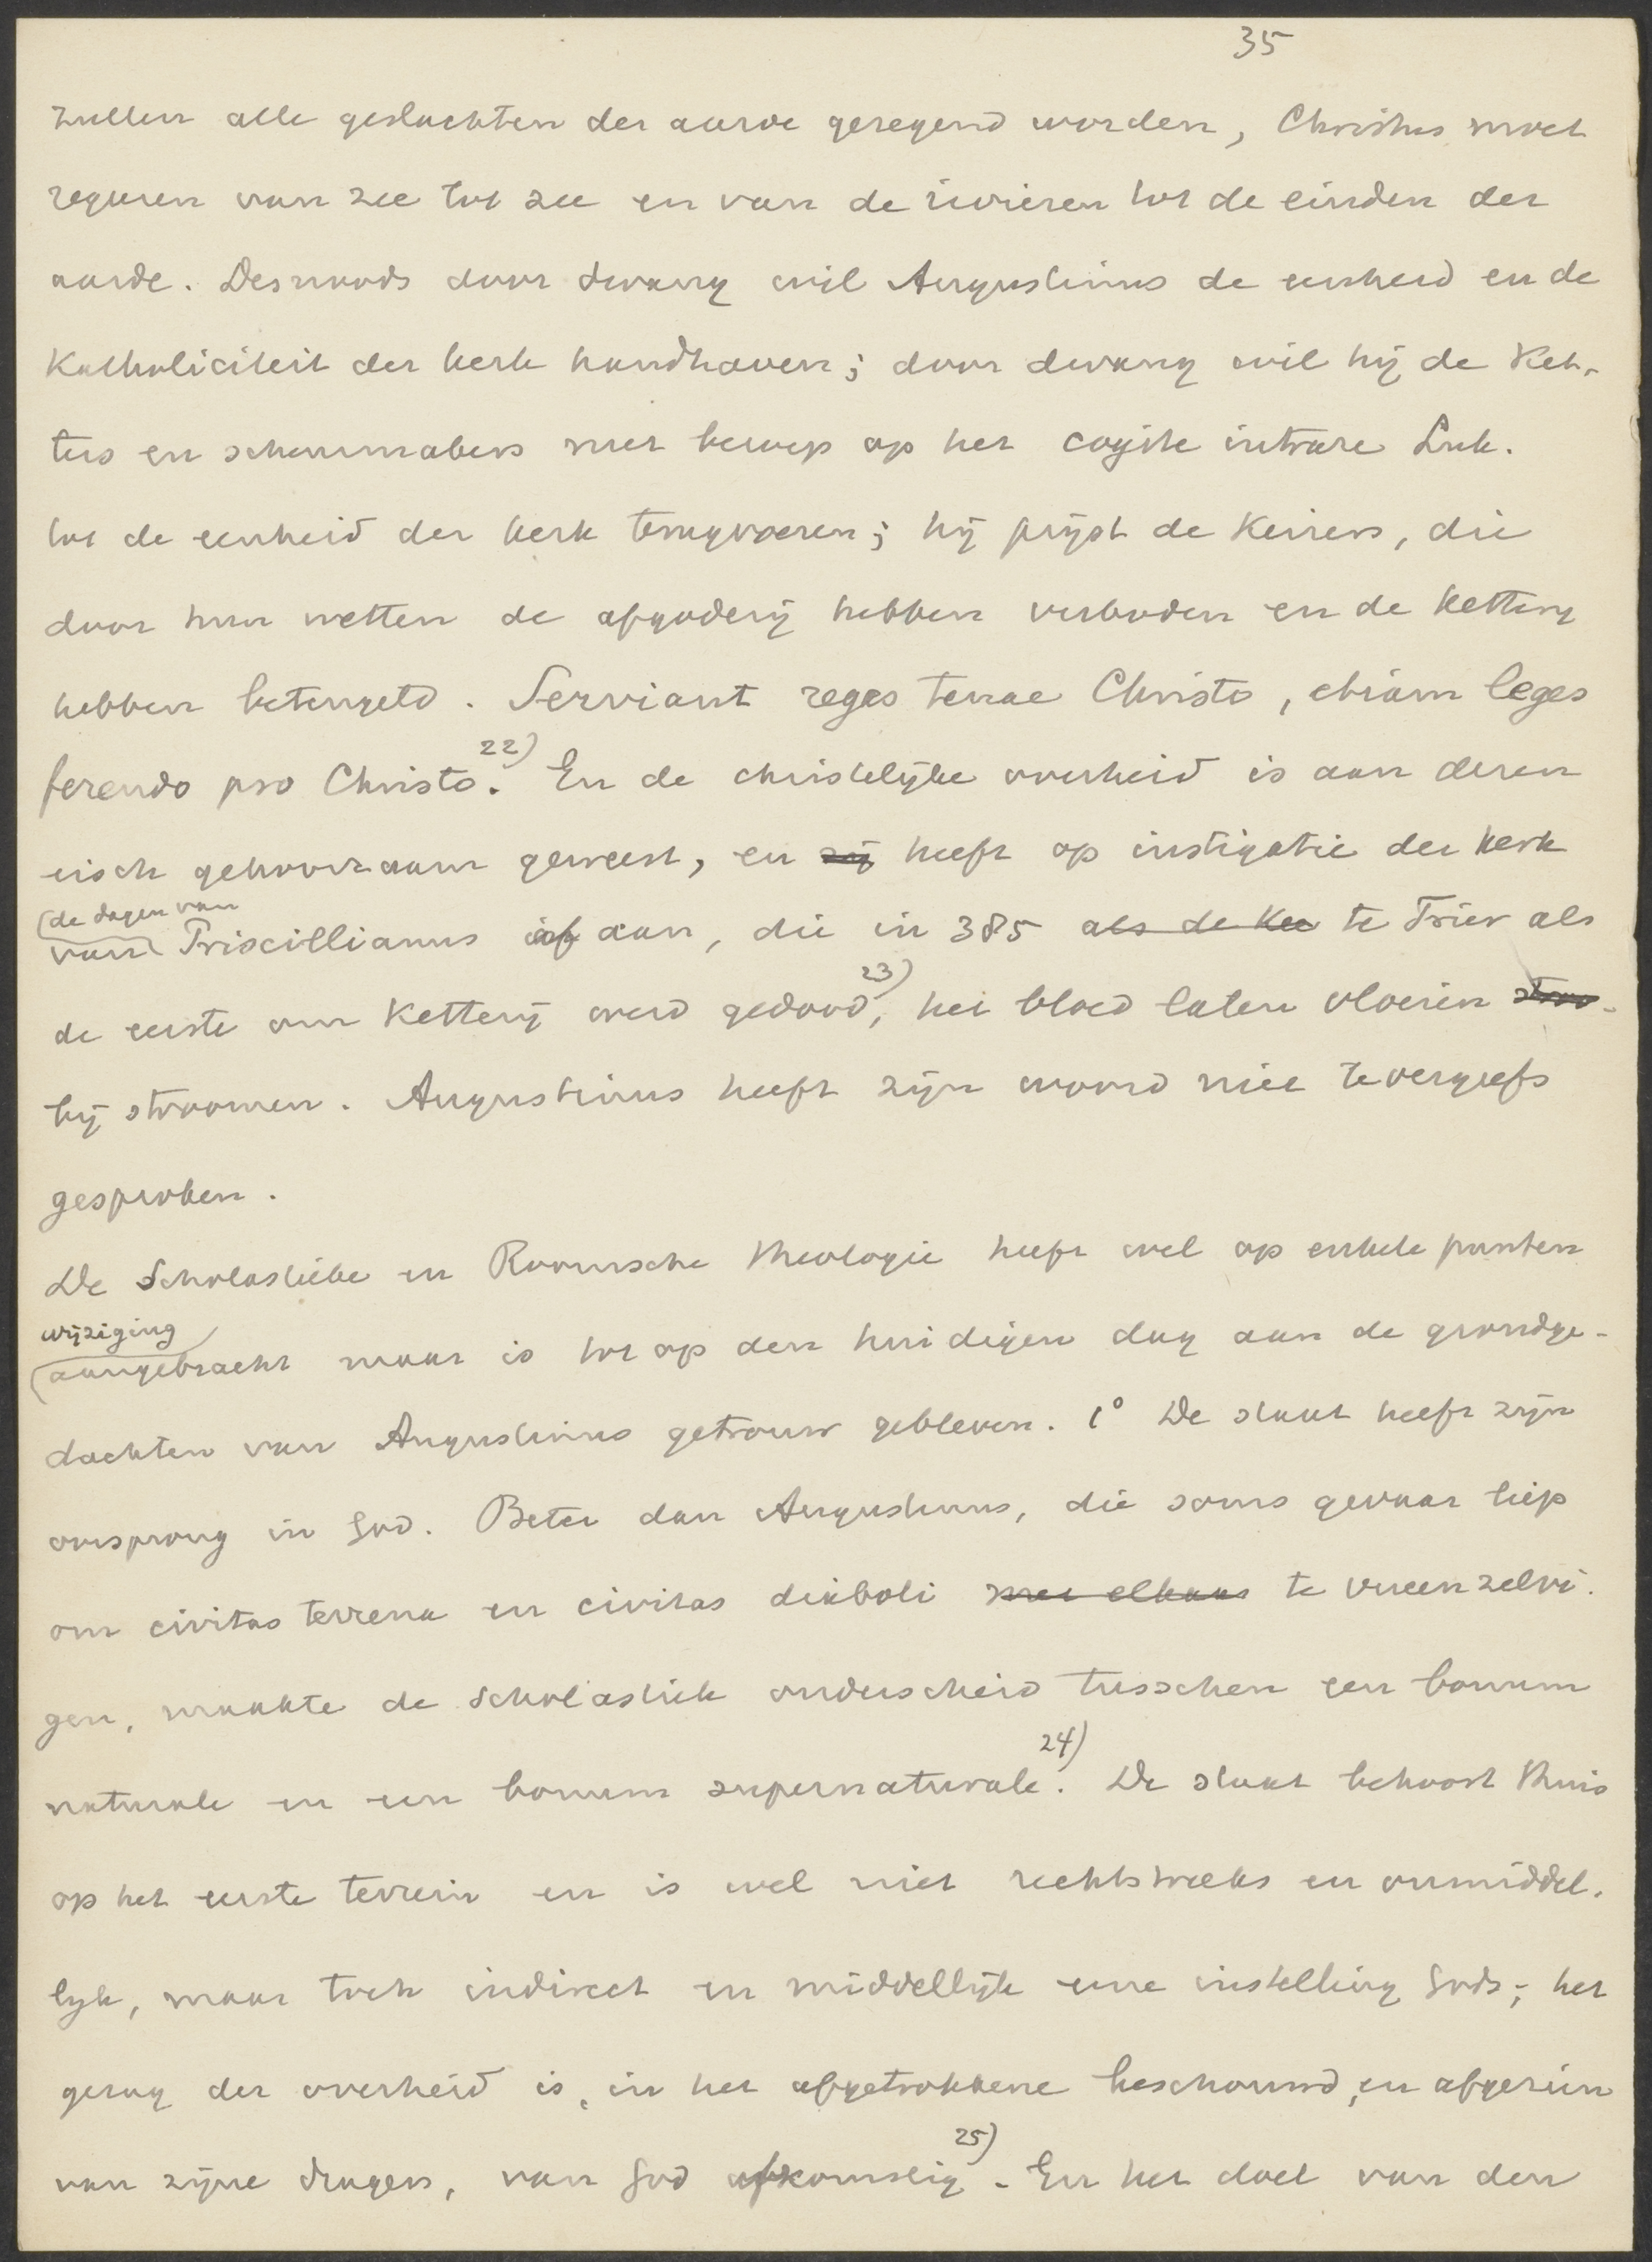 35
zullen alle geslachten der aarde gezegend worden, Christus moet
regeeren van zee tot zee en van de rivieren tot de einden der
aarde. Desnoods door dwang wil Augustinus de eenheid en de
Katholiciteit der kerk handhaven; door dwang wil hij de Ket-
ters en scheurmakers met beroep op het cogite intrare Luk.
tot de eenheid der kerk terugvoeren; hij prijst de Keizers, die
door hun wetten de afgoderij hebben verboden en de Ketterij
hebben beteugeld. Serviant reges terrae Christo, etiam leges
ferendo pro Christo. 22) En de christelijke overheid is aan dezen
eisch gehoorzaam geweest, en zij heeft op instigatie der kerk
(de dagen van
van Priscillianus af aan, die in 385 als de Ke te Trier als
de eerste om Ketterij werd gedood, 23) het bloed laten vloeien stro-
bij stroomen. Augustinus heeft zijn woord niet tevergeefs
gesproken.
De Scholastieke en Roomsche theologie heeft wel op enkele punten
wijziging
(aangebracht maar is tot op den huidigen dag aan de grondge-
dachten van Augustinus getrouw gebleven. 1° De staat heeft zijn
oorsprong in God. Beter dan Augustinus, die soms gevaar liep
om civitas terrena en civitas diaboli met elkaar te vereenzelvi-
gen, maakte de Scholastiek onderscheid tusschen een bonum
naturale en een bonum supernaturale. 24) De staat behoort thuis
op het eerste terrein en is wel niet rechtstreeks en onmiddel-
lijk, maar toch indirect en middellijk eene instelling Gods; het
gezag der overheid is, in het afgetrokkene beschouwd, en afgezien
van zijne dragers, van God afkomstig 25). En het doel van den